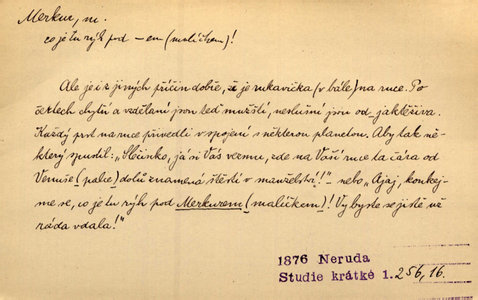 Merkur, m.
co je tu rýh pod –em (malíčkem)!
Ale je i z jiných příčin dobře, že je rukavička (v bále) na ruce. Po
čertech chytří a vzdělaní jsou teď mužští, neslušní jsou od jaktěživa.
Každý prst na ruce přivedli v spojení s některou planetou. Aby tak ně-
který spustil: „Slečinko, já si Vás vezmu, zde na Vaší ruce ta čára od
Venuše (palce) dolů znamená štěstí v manželství!" – nebo „Ajaj, koukej-
me se, co je tu rýh pod Merkurem (malíčkem)! Vy byste se jistě už
ráda vdala!"
1876 Neruda
Studie krátké 1. 256, 16.